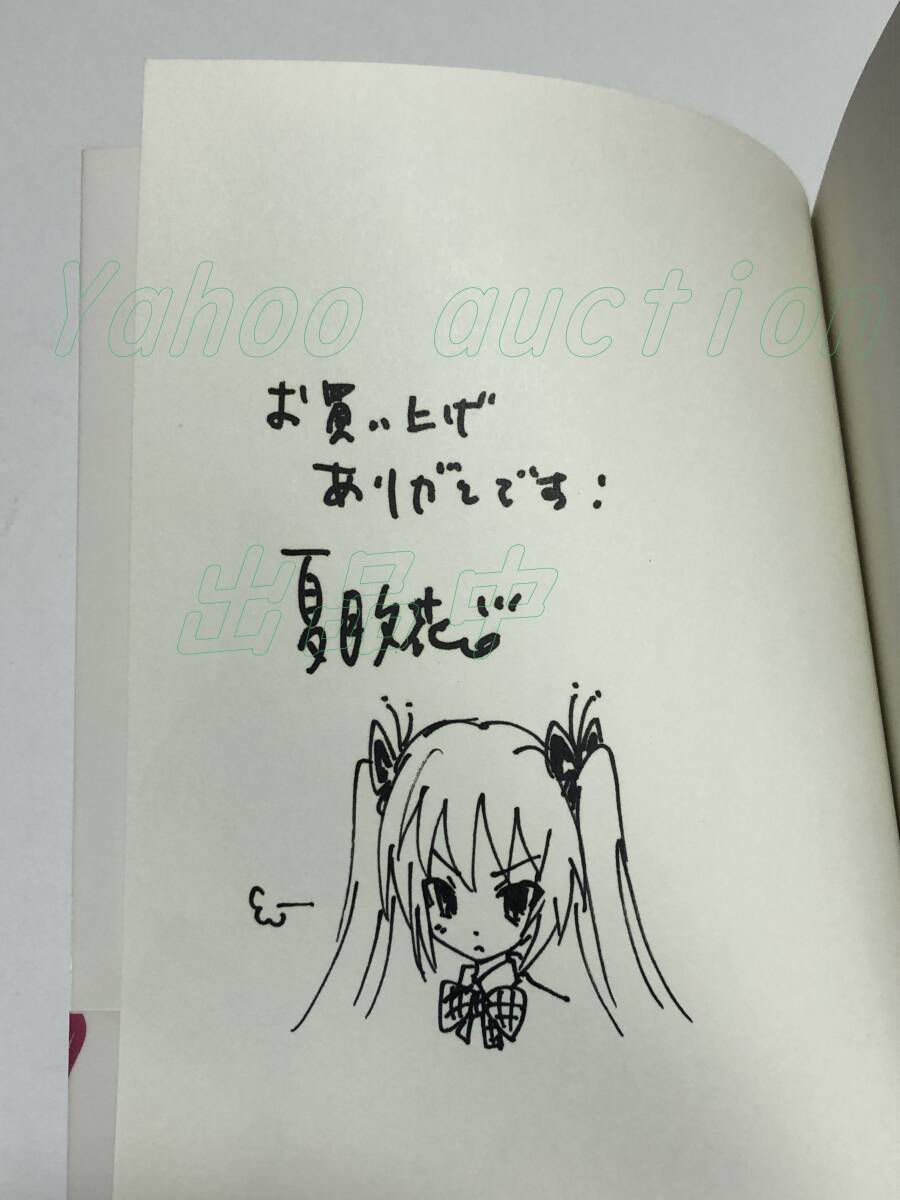 Yahoo auction
お買い上げ
ありがとです!
出品中